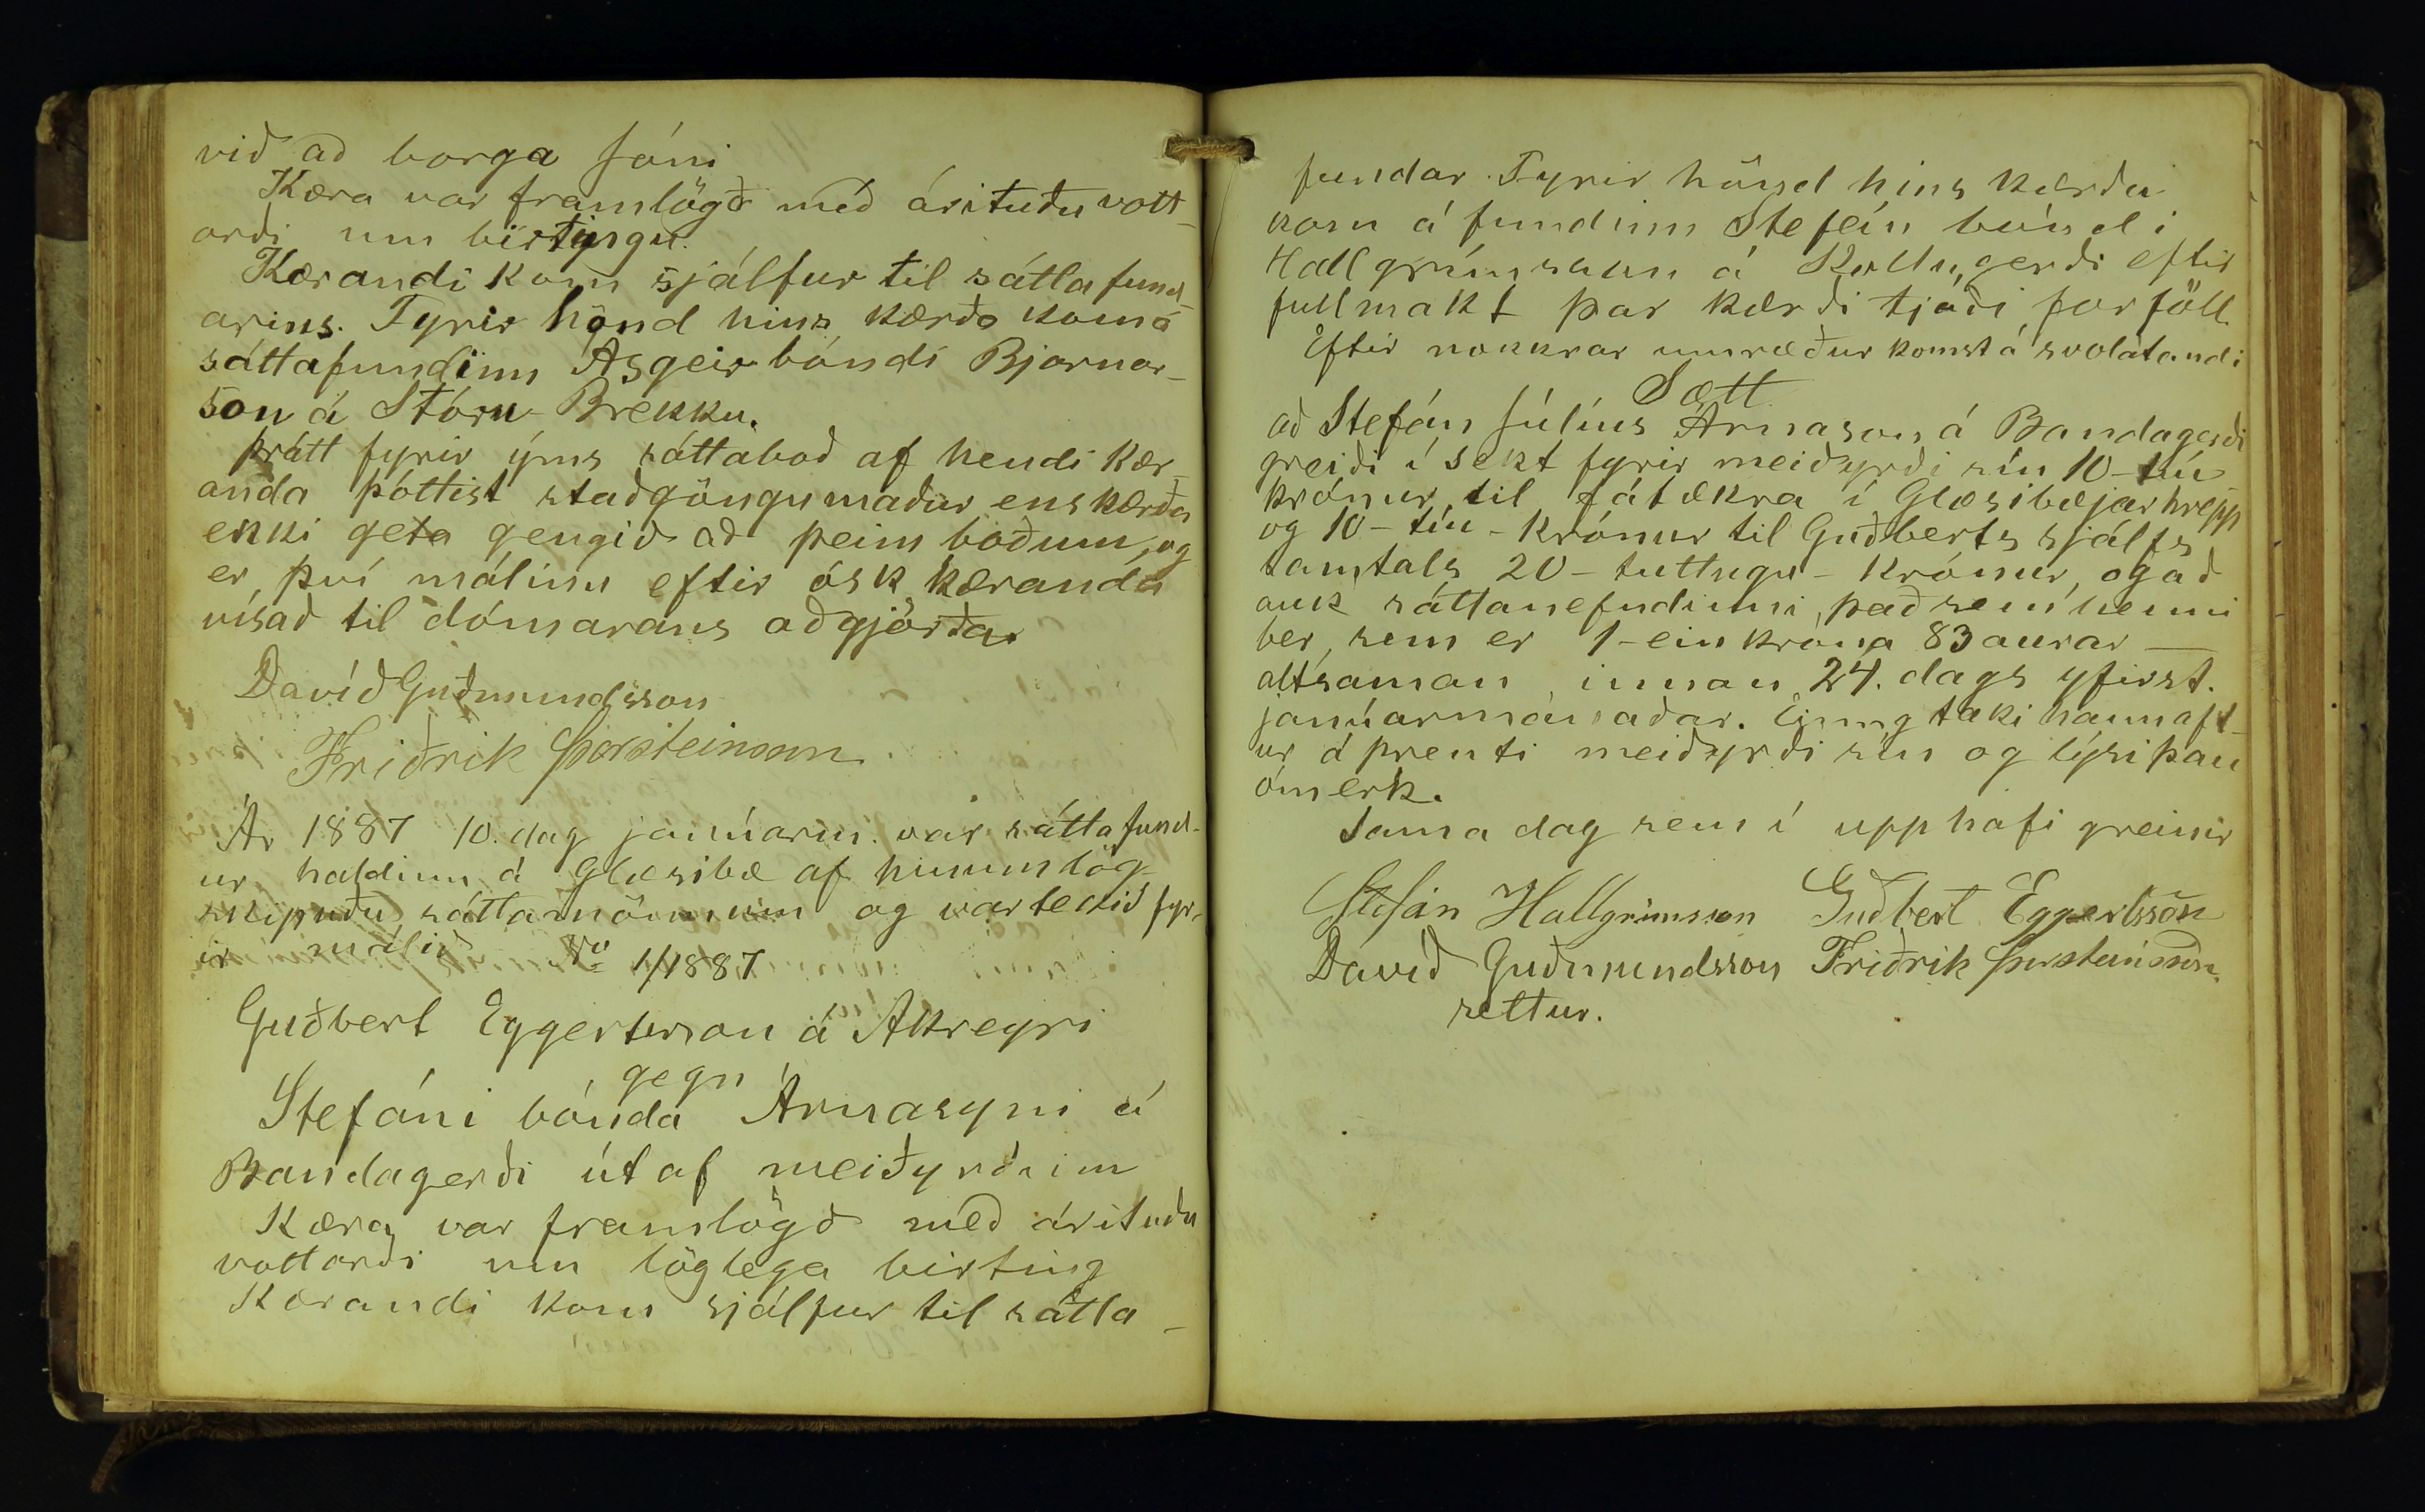 við að borga Jóni
Kæra var framlögð með árituðu vott-
orði um birtingu.
Kærandi kom sjálfur til sáttafund-
arins. Fyrir hönd hins kærða kom á
sáttafundinn Ásgeir bóndi Bjarnar-
son á Stóru-Brekku.
Þrátt fyrir ýms sáttaboð af hendi kær-
anda þóttist staðgöngumaður ens kærða
ekki geta gengið að þeim boðum, og
er því málinu eftir ósk kæranda
vísað til dómarans aðgjörða.
Davíð Guðmundsson
Friðrik Þorsteinsson
Ár 1887 10. dag janúarm. var sáttafund-
ur haldinn á Glæsibæ af hinum lög-
skipuðu sáttamönnum og var tekið fyr-
ir málið No 1/1887
Guðbert Eggertsson á Akreyri
gegn
Stefáni bónda Árnasyni á
Bandagerði út af meiðyrðum
Kæra var framlögð með árituðu
vottorði um löglega birting
Kærandi kom sjálfur til sátta-
fundar. Fyrir hönd hins kærða
kom á fundinn Stefán bóndi
Hallgrímsson á Kollugerði eftir
fullmakt þar kærði tjáði forföll.
Eftir nokkrar umræður komst á svolátandi
Sætt
að Stefán Júlíus Árnason á Bandagerði
greiði í sekt fyrir meiðyrði sín 10-tíu
krónur til fátækra í Glæsibæjarhrepp
og 10-tíu-krónur til Guðberts sjálfs
samtals 20-tuttugu-krónur, og að
auk sáttanefndinni, það sem henni
ber, sem er 1-ein króna 83 aurar —
altsaman, innan 24. dags yfirst.
janúarmánaðar. Einnig taki hann aft-
ur á prenti meiðyrði sín og lýsi þau
ómerk.
Sama dag sem í upphafi greinir
Stefán Hallgrímsson Guðbert Eggertsson
Davíð Guðmundsson Friðrik Þorsteinsson.
settur.